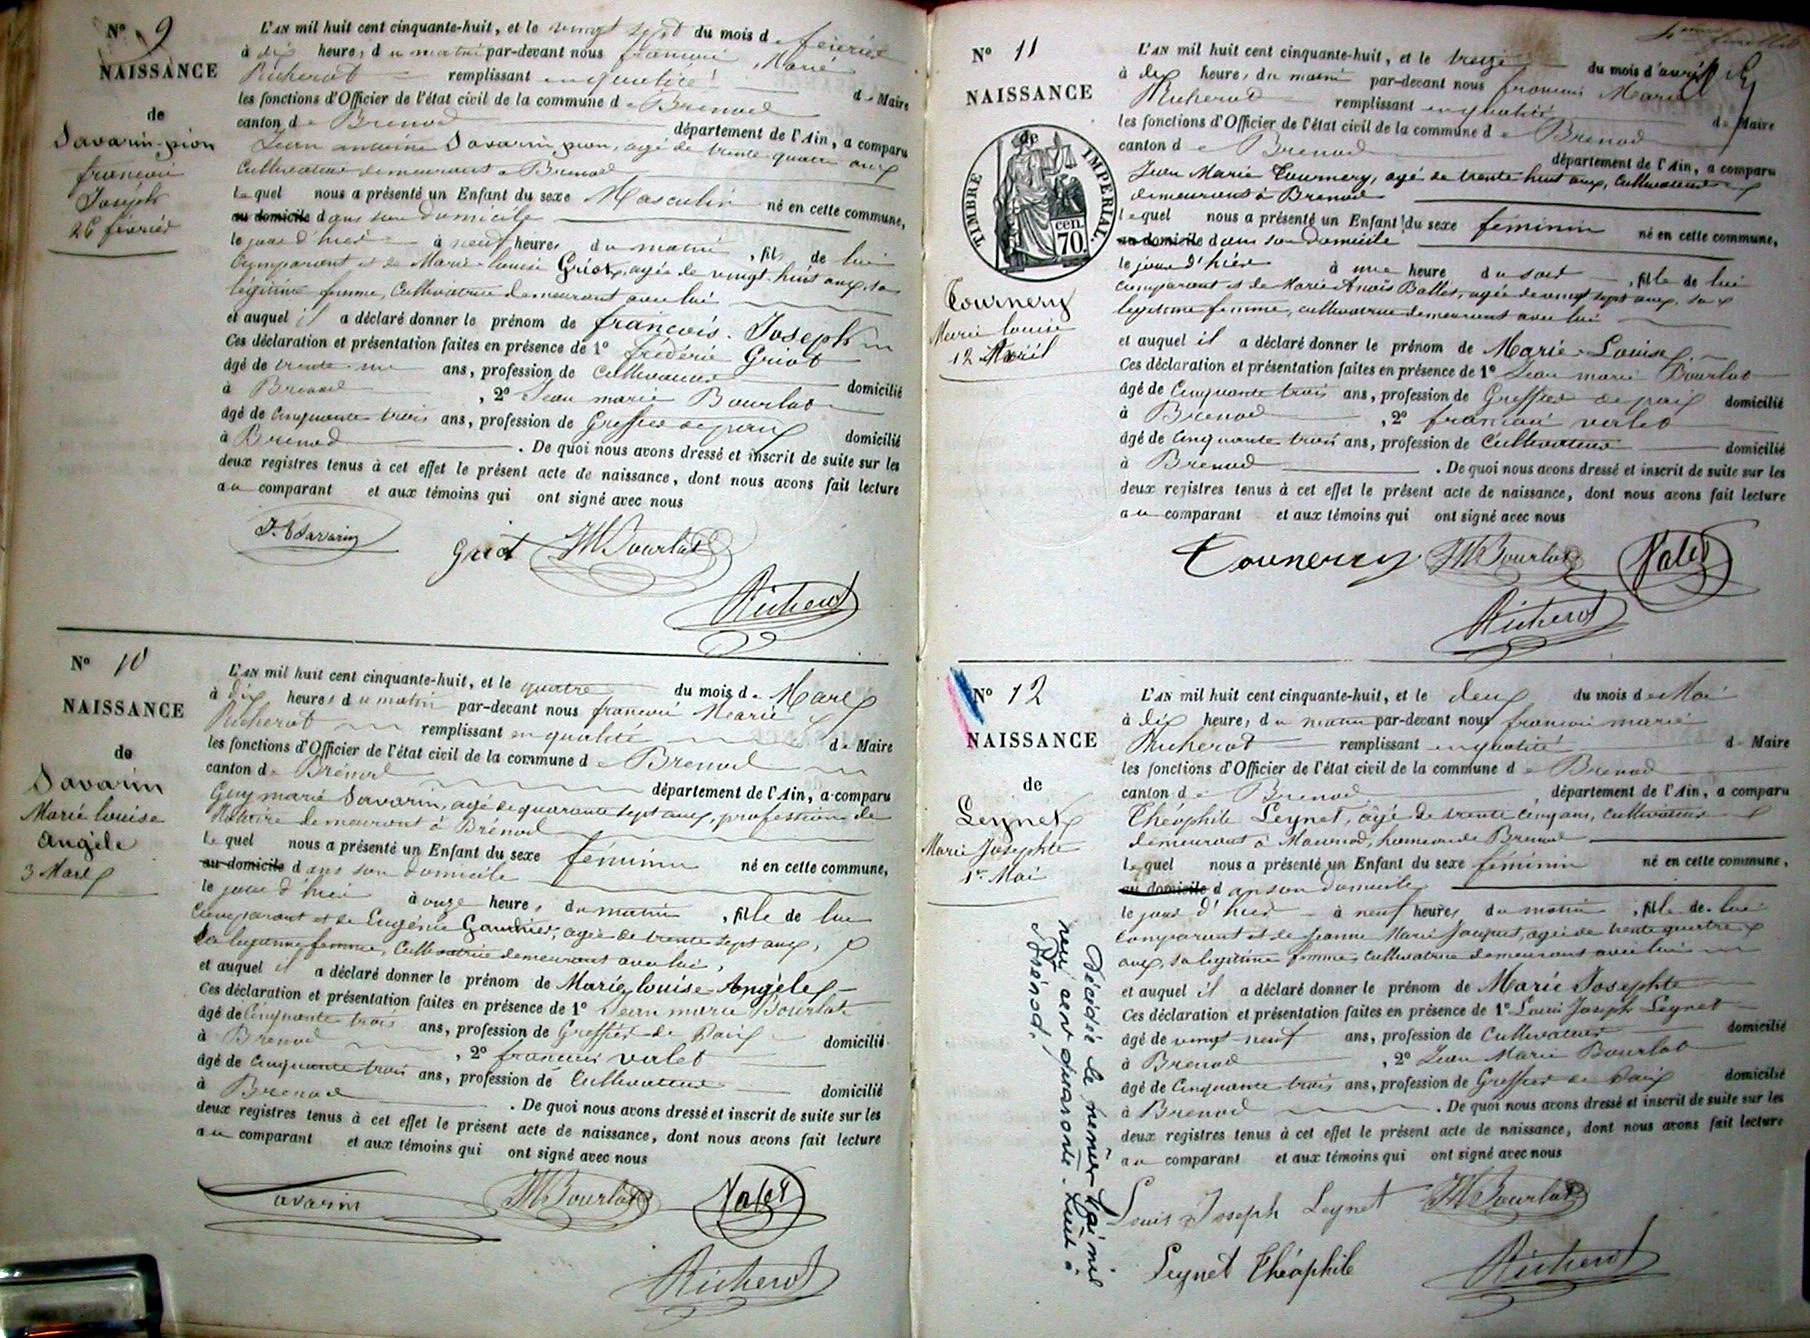 N° 9
NAISSANCE
de
Savarin-pion
françois
Joseph
26 février
L'AN mil huit cent cinquante-huit, et le vingt sept du mois de février
à dix heures du matin par-devant nous françois Marie
Richerot remplissant en qualité de Maire
les fonctions d'Officier de l'état civil de la commune de Brenod
canton de Brenod département de l'Ain, a comparu
Jean antoine Savarin pion, agé de trente quatre ans
Cultivateur demeurant a Brenod
lequel nous a présenté un Enfant du sexe Masculin né en cette commune,
au domicile dans son domicile
le jour d'hier à neuf heures du matin, fils de lui
Comparant et de Marie Louise Griot, agée de vingt huit ans, sa
legitime femme, Cultivatrice demeurant avec lui
et auquel il a déclaré donner le prénom de françois Joseph
Ces déclaration et présentation faites en présence de 1° frédéric Griot
âgé de trente un ans, profession de Cultivateur domicilié
à Brenod, 2° Jean marie Bourlot
âgé de Cinquante trois ans, profession de Greffier de paix domicilié
à Brenod. De quoi nous avons dressé et inscrit de suite sur les
deux registres tenus à cet effet le présent acte de naissance, dont nous avons fait lecture
au comparant et aux témoins qui ont signé avec nous
Savarin Griot JM Bourlot
Richerot
N° 10
NAISSANCE
de
Savarin
Marie Louise
Angèle
3 Mars
L'AN mil huit cent cinquante-huit, et le quatre du mois de Mars
à dix heures du matin par-devant nous françois Marie
Richerot remplissant en qualité de Maire
les fonctions d'Officier de l'état civil de la commune de Brenod
canton de Brénod département de l'Ain, a comparu
Guy marie Savarin, agé de quarante sept ans, profession de
Notaire demeurant à Brénod
lequel nous a présenté un Enfant du sexe féminin né en cette commune,
au domicile dans son domicile
le jour d'hier à onze heures du matin, fille de lui
Comparant et de Eugénie agée de trente sept ans,
Sa legitime femme, Cultivatrice demeurant avec lui,
et auquel il a déclaré donner le prénom de Marie Louise Angèle
Ces déclaration et présentation faites en présence de 1° Jean marie Bourlot
âgé de Cinquante trois ans, profession de Greffier de Paix domicilié
à Brenod, 2° françois verlet
âgé de Cinquante trois ans, profession de Cultivateur domicilié
à Brenod. De quoi nous avons dressé et inscrit de suite sur les
deux registres tenus à cet effet le présent acte de naissance, dont nous avons fait lecture
au comparant et aux témoins qui ont signé avec nous
Savarin JM Bourlot
Richerot
N° 11
NAISSANCE
de
TIMBRE IMPERIAL
70 cen.
Tournery
Marie Louise
12 Avril
L'AN mil huit cent cinquante-huit, et le treize du mois d'avril
à dix heures du matin par-devant nous françois Marie
Richerot remplissant en qualité de Maire
les fonctions d'Officier de l'état civil de la commune de Brenod
canton de Brenod département de l'Ain, a comparu
Jean Marie Tournery, agé de trente huit ans, Cultivateur
demeurant à Brenod
lequel nous a présenté un Enfant du sexe féminin né en cette commune,
au domicile dans son Domicile
le jour d'hier à une heure du soir, fille de lui
Comparant et de Marie Anaïs Ballet, agée de vingt sept ans, sa
legitime femme, cultivatrice demeurant avec lui
et auquel il a déclaré donner le prénom de Marie Louise
Ces déclaration et présentation faites en présence de 1° Jean marie Bourlot
âgé de Cinquante trois ans, profession de Greffier de paix domicilié
à Brenod, 2° françois verlet
âgé de Cinquante trois ans, profession de Cultivateur domicilié
à Brenod. De quoi nous avons dressé et inscrit de suite sur les
deux registres tenus à cet effet le présent acte de naissance, dont nous avons fait lecture
au comparant et aux témoins qui ont signé avec nous
Tournery JM Bourlot
Richerot
N° 12
NAISSANCE
de
Leynet
Marie Josephte
1er Mai
Décédée le premier Mai mil
neuf cent quarante-huit à
Brénod.
L'AN mil huit cent cinquante-huit, et le deux du mois de Mai
à dix heures du matin par-devant nous françois marie
Richerot remplissant en qualité de Maire
les fonctions d'Officier de l'état civil de la commune de Brenod
canton de Brenod département de l'Ain, a comparu
Théophile Leynet, agé de trente cinq ans, cultivateur
demeurant à hameau de Brenod
lequel nous a présenté un Enfant du sexe féminin né en cette commune,
au domicile dans son Domicile
le jour d'hier à neuf heures du matin, fille de lui
Comparant et de Jeanne Marie Jacquet, agée de trente quatre
ans, sa legitime femme, cultivatrice demeurant avec lui
et auquel il a déclaré donner le prénom de Marie Josephte
Ces déclaration et présentation faites en présence de 1° Louis Joseph Leynet
âgé de vingt-neuf ans, profession de Cultivateur domicilié
à Brenod, 2° Jean Marie Bourlot
âgé de Cinquante trois ans, profession de Greffier de Paix domicilié
à Brenod. De quoi nous avons dressé et inscrit de suite sur les
deux registres tenus à cet effet le présent acte de naissance, dont nous avons fait lecture
au comparant et aux témoins qui ont signé avec nous
Louis Joseph Leynet JM Bourlot
Leynet Théophile Richerot